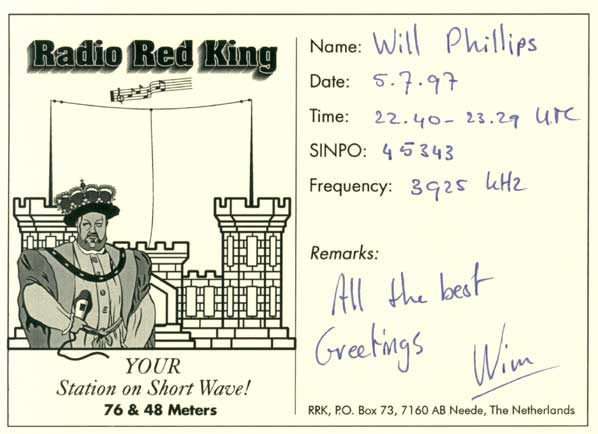 Radio Red King
YOUR
Station on Short Wave!
76 & 48 Meters
Name: Will Phillips
Date: 5.7.97
Time: 22.40 - 23.29 UTC
SINPO: 45343
Frequency: 3925 kHz
Remarks:
All the best
Greetings Wim
RRK, P.O. Box 73, 7160 AB Neede, The Netherlands